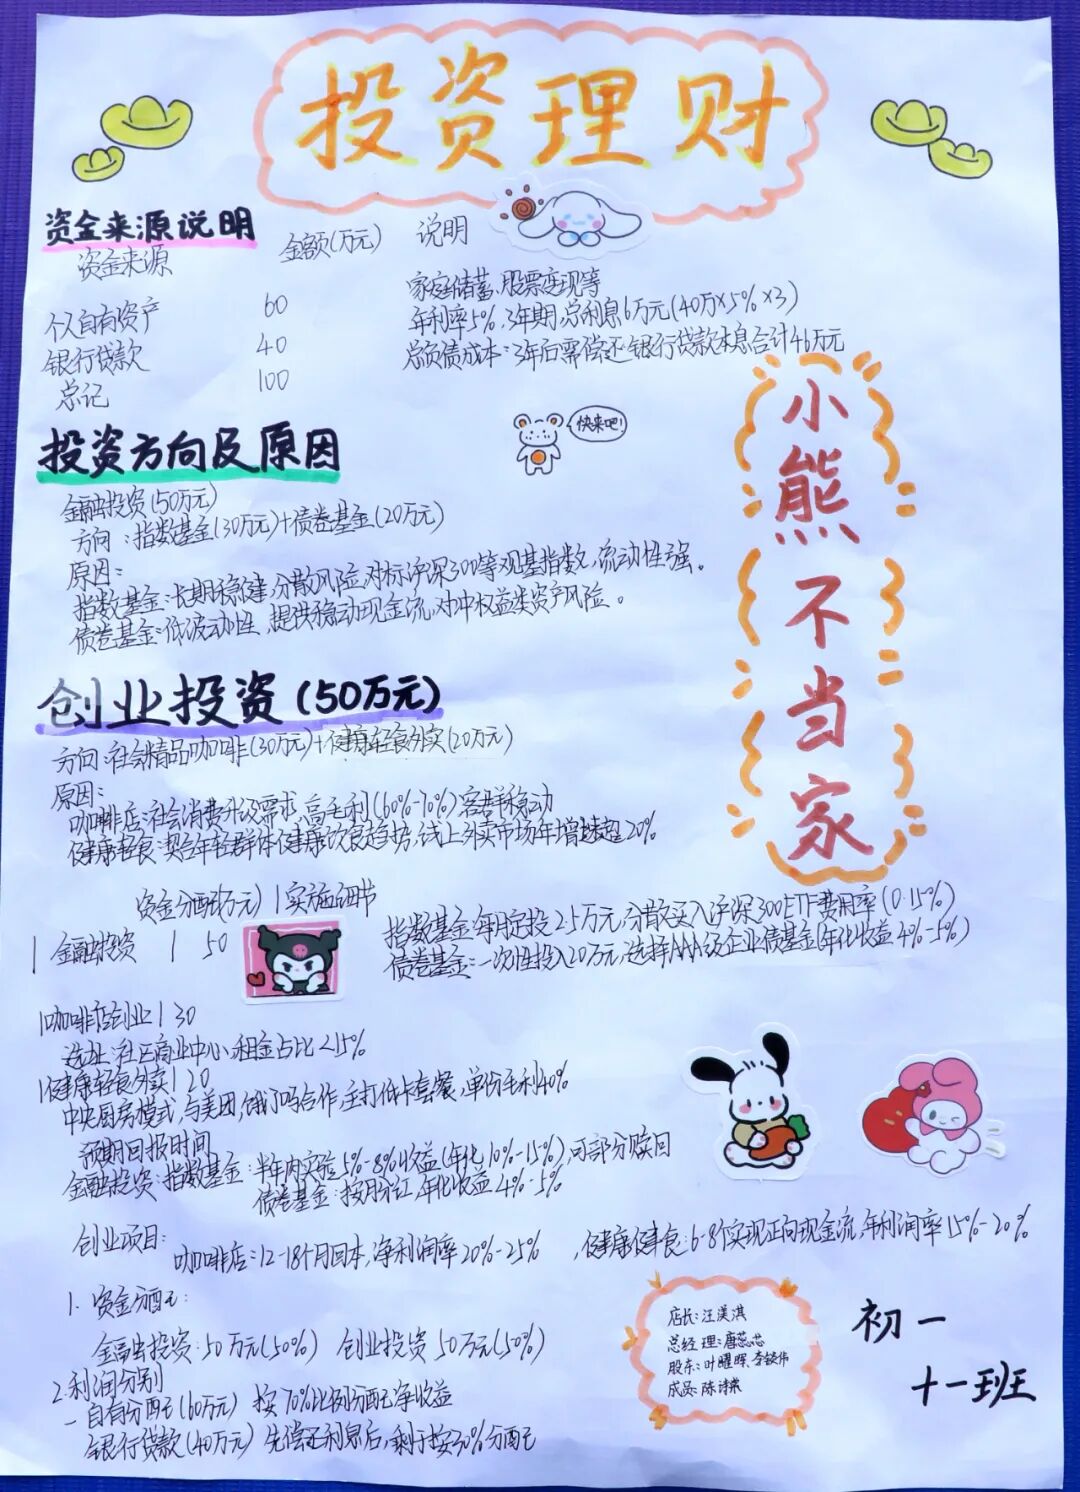 投资理财
资金来源说明
资金来源 金额(万元) 说明
个人自有资产 60 家庭储蓄、股票变现等
银行贷款 40 年利率5%,3年期,总利息6万元(40万×5%×3)
总记 100 总负债成本:3年后需偿还银行贷款本息合计46万元
快来吧!
小熊不当家
投资方向及原因
金融投资(50万元)
方向:指数基金(30万元)+债卷基金(20万元)
原因:
指数基金:长期稳健,分散风险,对标沪深300等观基指数,流动性强。
债卷基金:低波动性,提供稳动现金流,对冲权益类资产风险。
创业投资(50万元)
方向:社会精品咖啡(30万元)+健康轻食外卖(20万元)
原因:
咖啡店:社会消费升级需求,高毛利(60%-70%)客群稳动
健康轻食:契合年轻群体健康饮食趋势,线上外卖市场年增速超20%
资金分配(万元)|实施细节
|金融投资 | 50
指数基金:每月定投2.5万元,分散买入沪深300ETF费用率(0.15%)
债卷基金:一次性投入20万元,选择AAA级企业债基金(年化收益4%-5%)
|咖啡店创业|30
选址:社区商业中心,租金占比<15%
|健康轻食外卖|20
中央厨房模式,与美团,饿了吗合作,主打低卡套餐,单份毛利40%
预期回报时间
金融投资:指数基金:半年内实验5%-8%收益(年化10%-15%),可部分赎回
债卷基金:按月分红,年化收益4%-5%
创业项目:
咖啡店:12-18个月回本,净利润率20%-25% ,健康健食:6-8个实现正向现金流,年利润率15%-20%
1.资金分配:
金融投资:50万元(50%) 创业投资50万元(50%)
2.利润分别
-自有分配(60万元) 按70%比例分配净收益
银行贷款(40万元) 先偿还利息后,剩于按30%分配
店长:汪美淇
总经理:唐蕊芯
股东:叶曜晖、李
成员:陈诗
初一
十一班